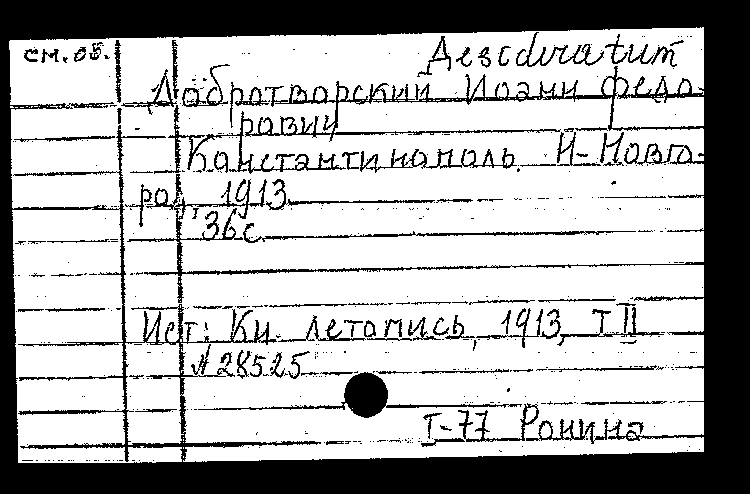 см. об.
Desideratum
Добротворский Иоанн Федо-
рович
Константинополь. Н-Новго-
род, 1913.
36 с.
Ист: Кн. летопись, 1913, Т II
N 28525
I-77 Ронина